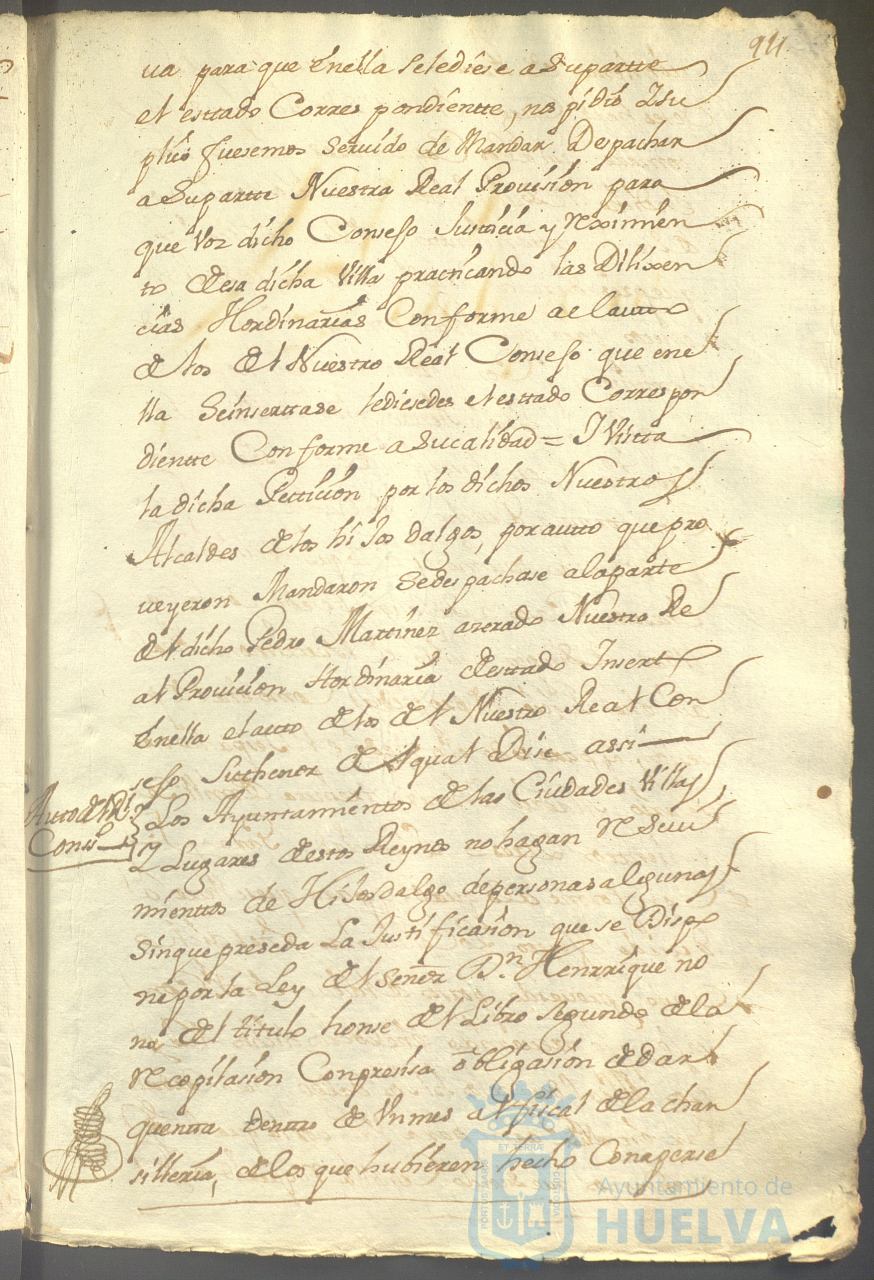 94
va para que Enella Selediese a Supartte
el esttado Corres pondientte, nos pidio Isu
plico fuesemos Servido de Mandar Despachar
a Supartte Nuestra Real Provision para
que Voz dicho Consejo Justicia y Reximien
to de esa dicha Villa practicando las Dilixen
cias Hordinarias Conforme a el autto
de los del Nuestro Real Consejo que ene
lla Seinserttase lediesedes el esttado Correspon
dientte Conforme a Sucalidad = I Vistta
la dicha Petticion por los dichos Nuestros
Alcaldes de los hijos dalgos, por autto que pro
veyeron Mandaron Sedespachase alaparte
del dicho Pedro Martinez azerado Nuestro Re
al Provicion Hordinaria de esttado Insertto
Enella el auto de los del Nuestro Real Con
sejo Sutthenor del qual Dise assi
Auto del Rl Consejo
Los Ayuntamientos de las Ciudades Villas
Y Lugares de estos Reynos no hagan Resevi
mienttos de Hijosdalgo de personas algunas
Sinque preseda La Justificasion que se Dispo
ne por la Ley del Señor Dn Henrrique no
na del titulo honse del Libro Segundo de la
Recopilasion Conpresisa obligasion de dar
quentta dentro de Un mes al fiscal de la chan
silleria, de los que hubieren hecho Conaperse
Ayuntamiento de
HUELVA